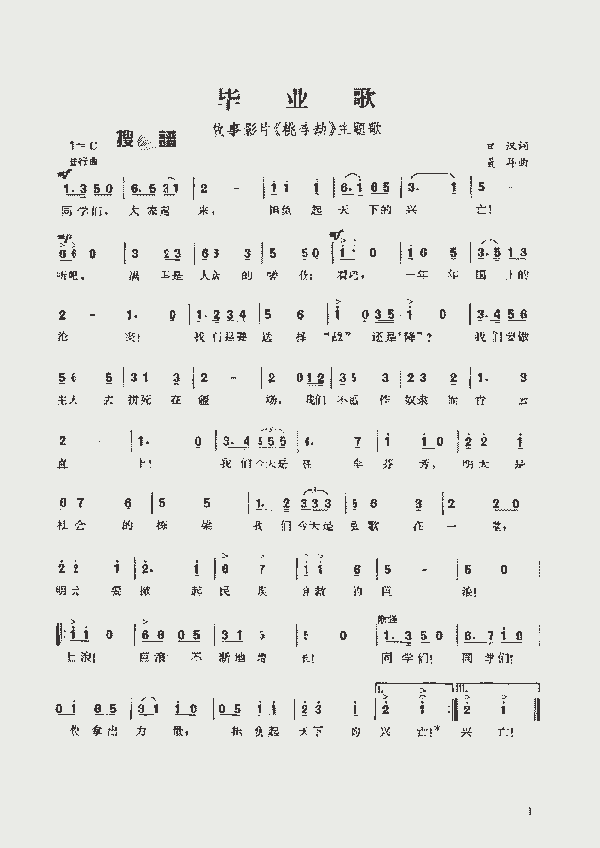 毕业歌
故事影片《桃李劫》主题歌
1=C 搜 谱 田汉词
进行曲 聂耳曲
mf
1. 3 5 0 6. 5 3 1 2 - 1 1 1 6. 1 6 5 3. 1 5 -
同学们, 大家起来, 担负起天下的兴亡!
听吧, 满耳是大众的嗟伤; 看吧, 一年年国土的
2 - 1. 0 1. 2 3 4 5 6 1 0 3 5 1 0 3. 4 5 6
沦丧! 我们是要选择"战"还是"降"? 我们要做
5 6 5 3 1 3 2 - 2 0 1 2 3 5 3 2 3 2 1. 3
主人去拼死在疆场, 我们不愿作奴隶而青云
2 - 1. 0
直上! 我们今天是桃李芬芳, 明天是
6 7 6 5 5 1. 2 3 3 3 5 6 3 2 2 0
社会的栋梁 我们今天是弦歌在一堂,
2 2 1 2. 1 6 7 1 1 6 5 - 5 0
明天要掀起民族自救的巨浪!
渐强
1 1 0 6 6 0 5 3 1 5 5 0 1. 3 5 0 6. 7 1 0
巨浪! 巨浪 不断地增长! 同学们! 同学们!
0 1 6 5 3 1 1 0 0 5 1 1 2 3 1 2 1 2 1
快拿出力量, 担负起天下的兴亡!* 兴亡!
1